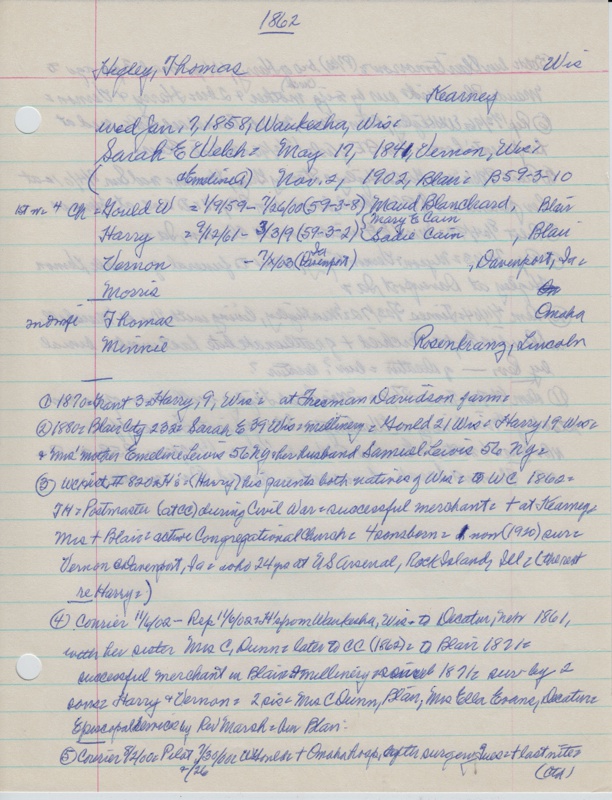 1862
Hegley, Thomas Wis
Kearney
wed Jan. 7, 1858, Waukesha, Wis=
Sarah E Welch = May 17, 1841, Vernon, Wis=
(Emeline) Nov. 2, 1902, Blair = B59-3-10
1st m 4 Ch = Gould W = 1/9/59 - 7/26/00 (59-3-8) Maud Blanchard, Blair
Harry = 9/12/61 - 3/3/9 (59-3-2) {Mary E Cain Sadie Cain , Blair
Vernon - (Ia Davenport) , Davenport, Ia =
Morris
2nd wife Thomas Omaha
Minnie Rosenkranz, Lincoln
① 1870 = Grant 3 = Harry, 9, Wis = at Freeman Davidson farm =
② 1880 = Blair City 232 = Sarah E 39 Wis = millinery = Gould 21 Wis = Harry 19 Wis =
+ Mrs' mother Emeline Lewis 56 NY = her husband Samuel Lewis 56 NY =
③ WC Hist # 820 = H's = (Harry) his parents both natives of Wis = to WC 1862 =
TH = Postmaster (at CC) during Civil War = successful merchant = + at Kearney =
Mrs + Blair = active Congregational Church = 4 sons born = 1 now (1930) sur =
Vernon @ Davenport, Ia = who 24 yrs at US Arsenal, Rock Island, Ill = (the rest
re Harry =)
④ Courier 11/6/02 - Rep 11/6/02 = H's from Waukesha, Wis = to Decatur, Nebr 1861,
with her sister Mrs C, Dunn = later to CC (1862) = to Blair 1871 =
successful merchant in Blair = millinery = since 1871 = surv by 2
sons = Harry + Vernon = 2 sis = Mrs C Dunn, Blair, Mrs Ella Evans, Decatur =
Episcopal services by Rev Marsh = bur Blair =
⑤ Courier 8/2/00 = Pilot = Gould = + Omaha hosp, after surgery = + last rites
7/26 (Otd)